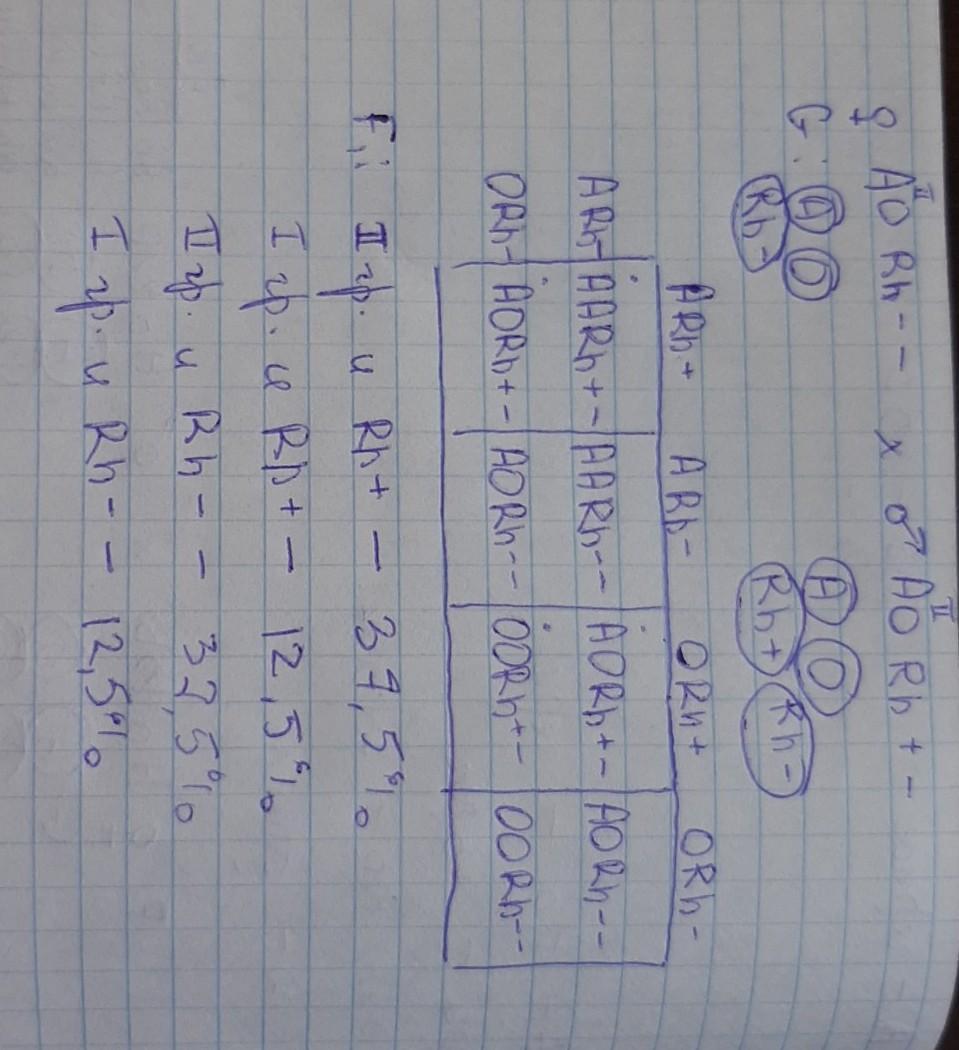 ♀ AO^II Rh-- x ♂ AO^II Rh+-
G: A O A O
Rh- Rh+ Rh-
ARh+ ARh- ORh+ ORh-
ARh- AARh+- AARh-- AORh+- AORh--
ORh- AORh+- AORh-- OORh+- OORh--
F₁: II гр. и Rh+ — 37,5%
I гр. и Rh+ — 12,5%
II гр. и Rh- — 37,5%
I гр. и Rh- — 12,5%